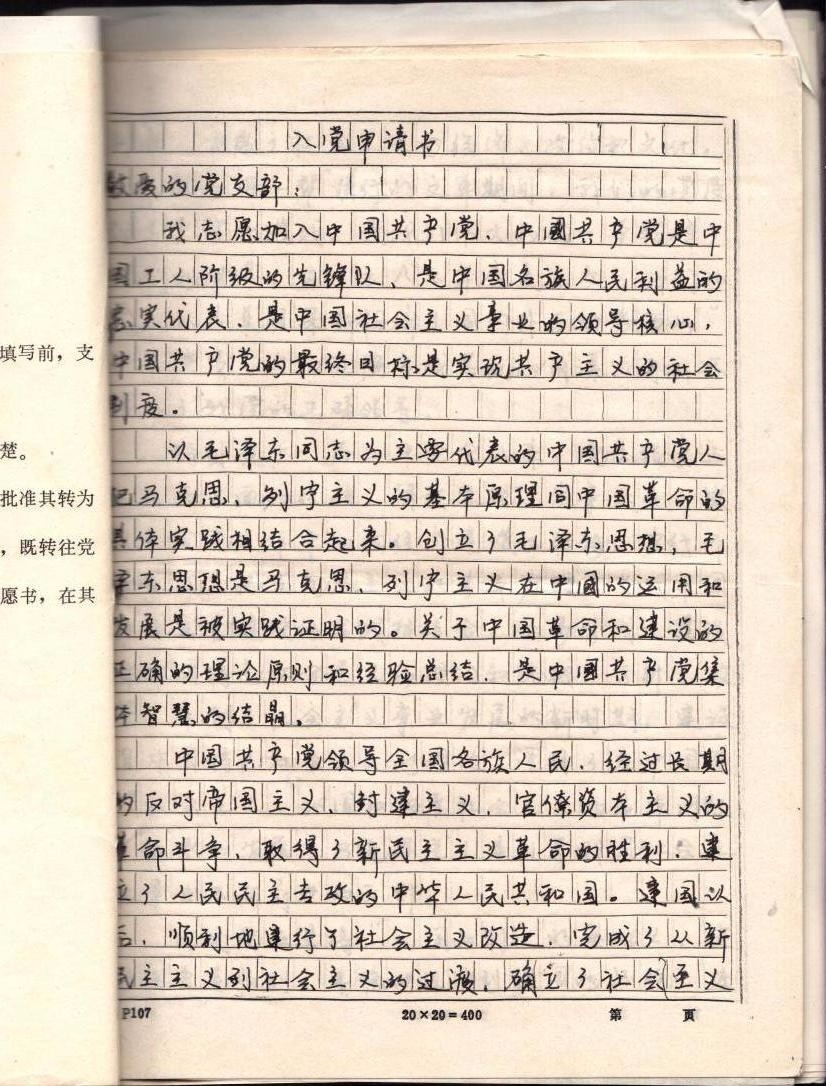 填写前，支
楚。
批准其转为
，既转往党
愿书，在其
入党申请书
敬爱的党支部：
我志愿加入中国共产党、中國共产党是中
国工人阶级的先锋队、是中国各族人民利益的
忠实代表、是中国社会主义事业的领导核心，
中国共产党的最终目标是实现共产主义的社会
制度。
以毛泽东同志为主要代表的中国共产党人
把马克思、列宁主义的基本原理同中国革命的
具体实践相结合起来。创立了毛泽东思想，毛
泽东思想是马克思、列宁主义在中國的运用和
发展是被实践证明的。关于中国革命和建设的
正确的理论原则和经验总结、是中國共产党集
体智慧的结晶。
中国共产党领导全国各族人民、经过长期
的反对帝国主义、封建主义、官僚资本主义的
革命斗争、取得了新民主主义革命的胜利：建
立了人民民主专政的中华人民共和国。建国以
后、顺利地进行了社会主义改造、完成了从新
民主主义到社会主义的过渡、确立了社会主义
P107
20×20=400
第 页